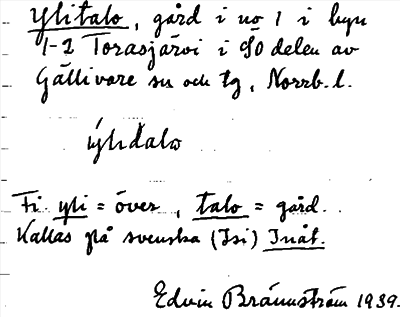 Ylitalo, gård i no 1 i byn
1-2 Torasjärvi i SO delen av
Gällivare sn och tg, Norrb. l.
ýlıdalω
Fi. yli = över, talo = gård.
Kallas på svenska (Isi) Inåt.
Edvin Brännström 1939.